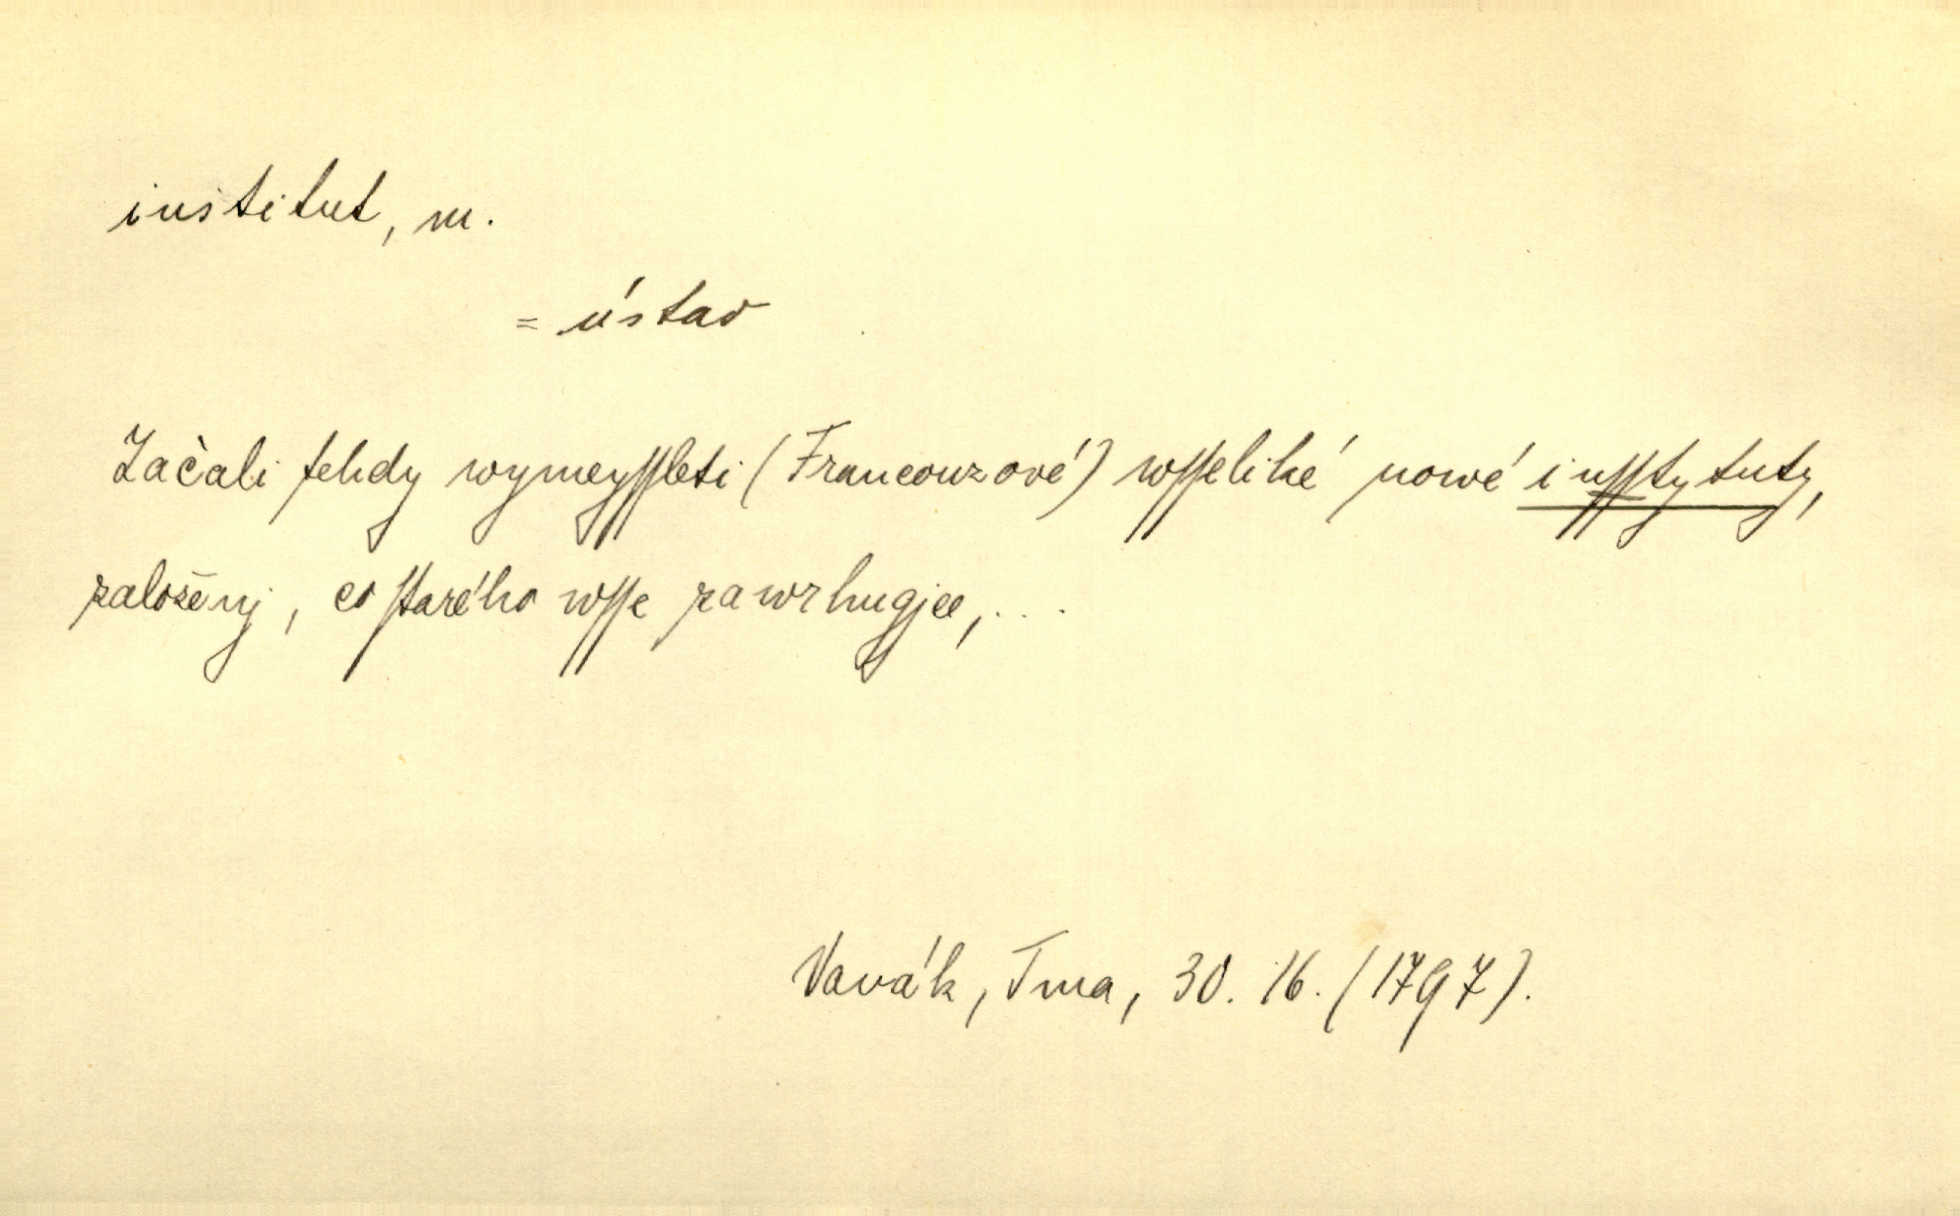 institut, m.
= ústav
Začali tehdy wymeyſſleti (Francouzové) wſſeliké nowé inſſtytuty,
založenj, co ſtarého wſſe zawrhugjce,...
Vavák, Tma, 30. 16. (1797).